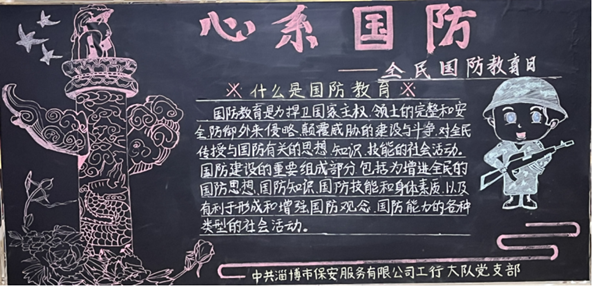 心系国防
——全民国防教育日
※什么是国防教育※
国防教育是为捍卫国家主权、领土的完整和安
全,防御外来侵略、颠覆威胁的建设与斗争,对全民
传授与国防有关的思想、知识、技能的社会活动。
国防建设的重要组成部分,包括为增进全民的
国防思想、国防知识、国防技能和身体素质,以及
有利于形成和增强国防观念、国防能力的各种
类型的社会活动。
中共淄博市保安服务有限公司工行大队党支部